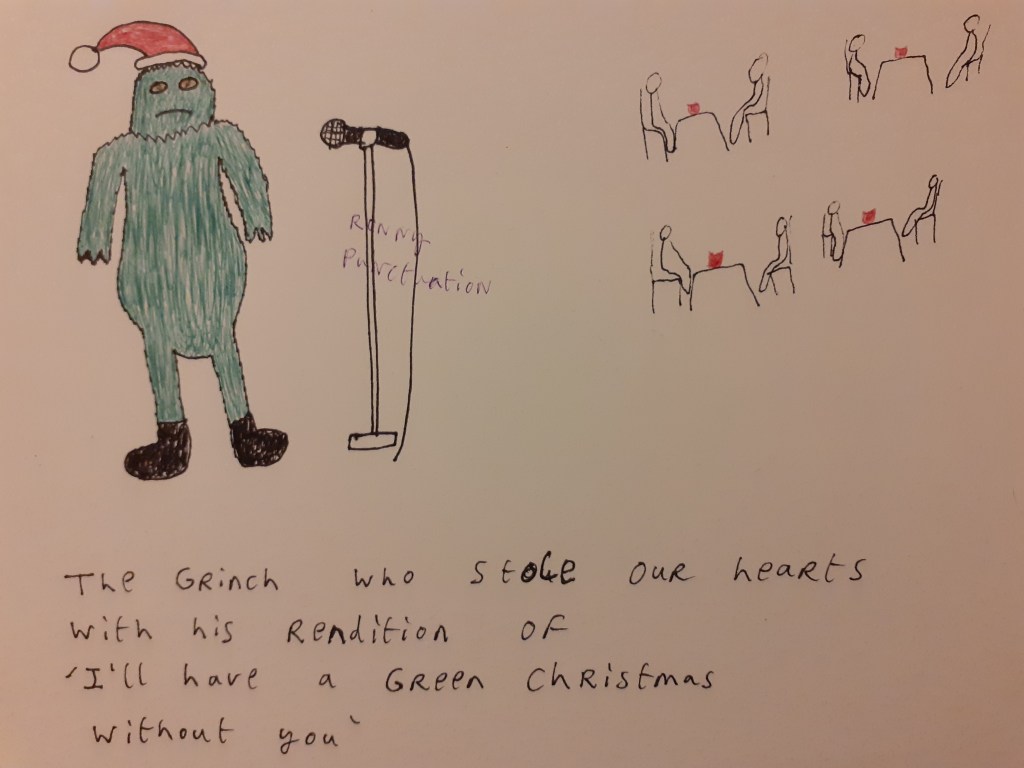 Ronny
Punctuation
The Grinch who stole our hearts
with his rendition of
'I'll have a Green Christmas
without you'